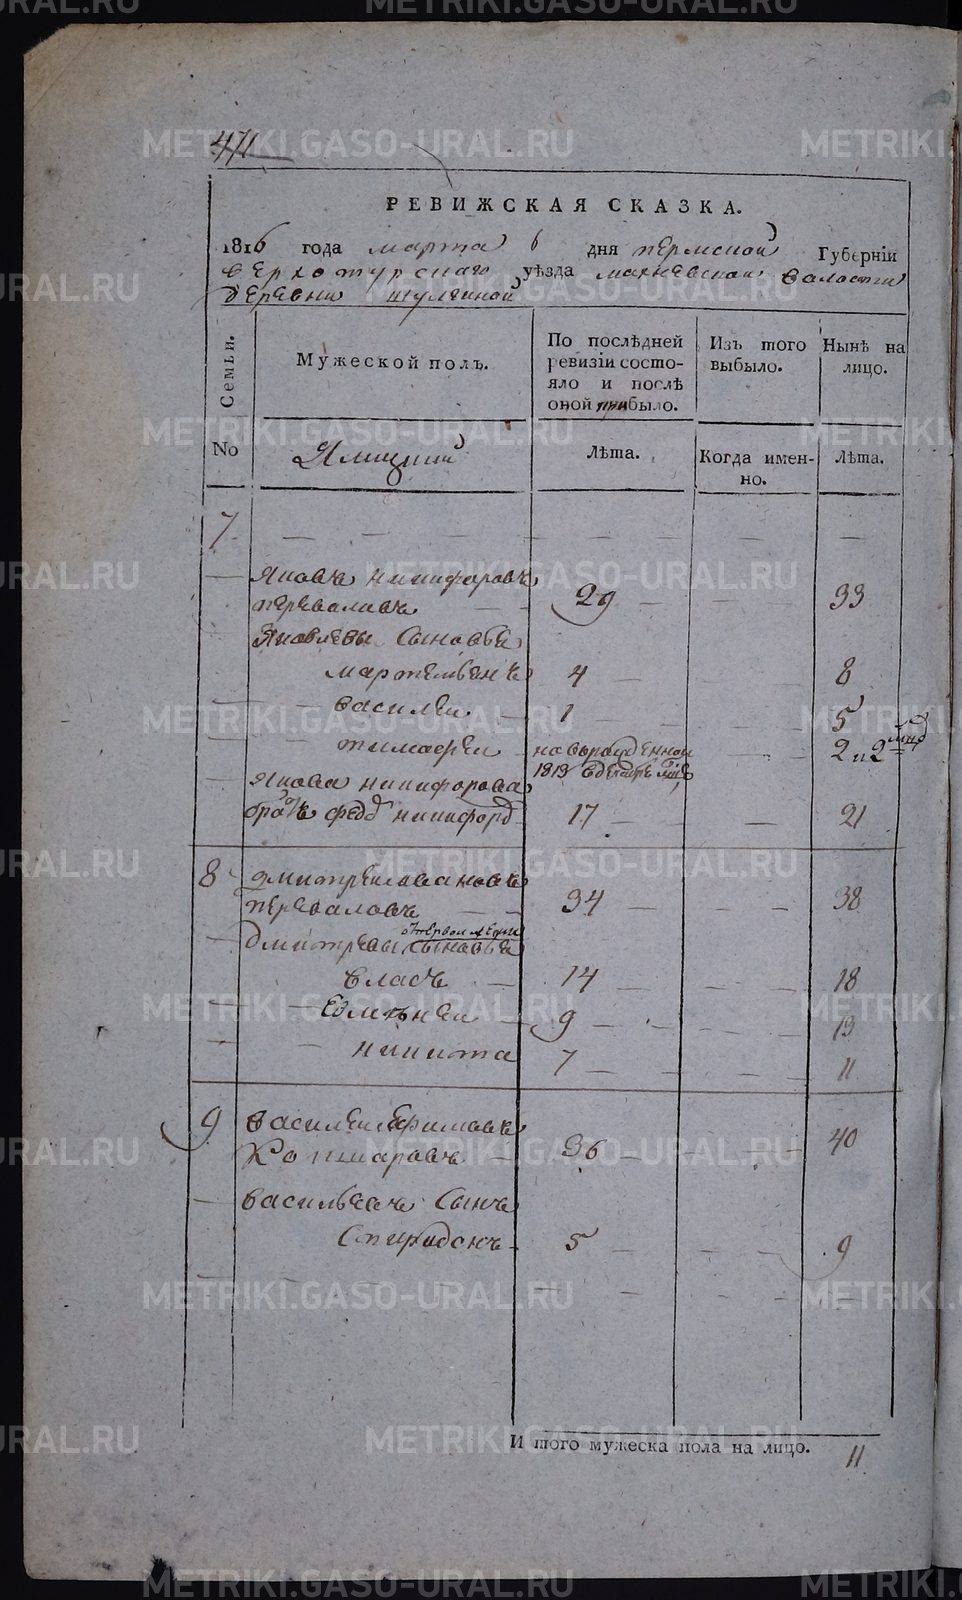 471
РЕВИЖСКАЯ СКАЗКА.
1816 года марта 6 дня пермской Губерніи
верхотурскаго уѣзда махневской валости
деревни
Семьи. Мужеской полъ. По послѣдней ревизіи состояло и послѣ оной прибыло. Изъ того выбыло. Нынѣ на лицо.
No Ямщики Лѣта. Когда именно. Лѣта.
7
Яковъ никифоровъ
перваловъ 29 33
Яковлевы Сыновья
мартемьенъ 4 8
василеи 1 5
тимафеи новорожденнои 2 и 2
1813 в декабре
Якова никифорова
братъ никифоръ 17 21
8 дмитреи ивановъ
переваловъ 34 38
дмитревы отпервои Сыновья
власъ 14 18
Емельнеи 9 13
никита 7 11
9 василеи Ефимовъ
Комаровъ 36 40
васильевъ Сынъ
Спиридонъ 5 9
И того мужеска пола на лицо. 11
METRIKI.GASO-URAL.RU